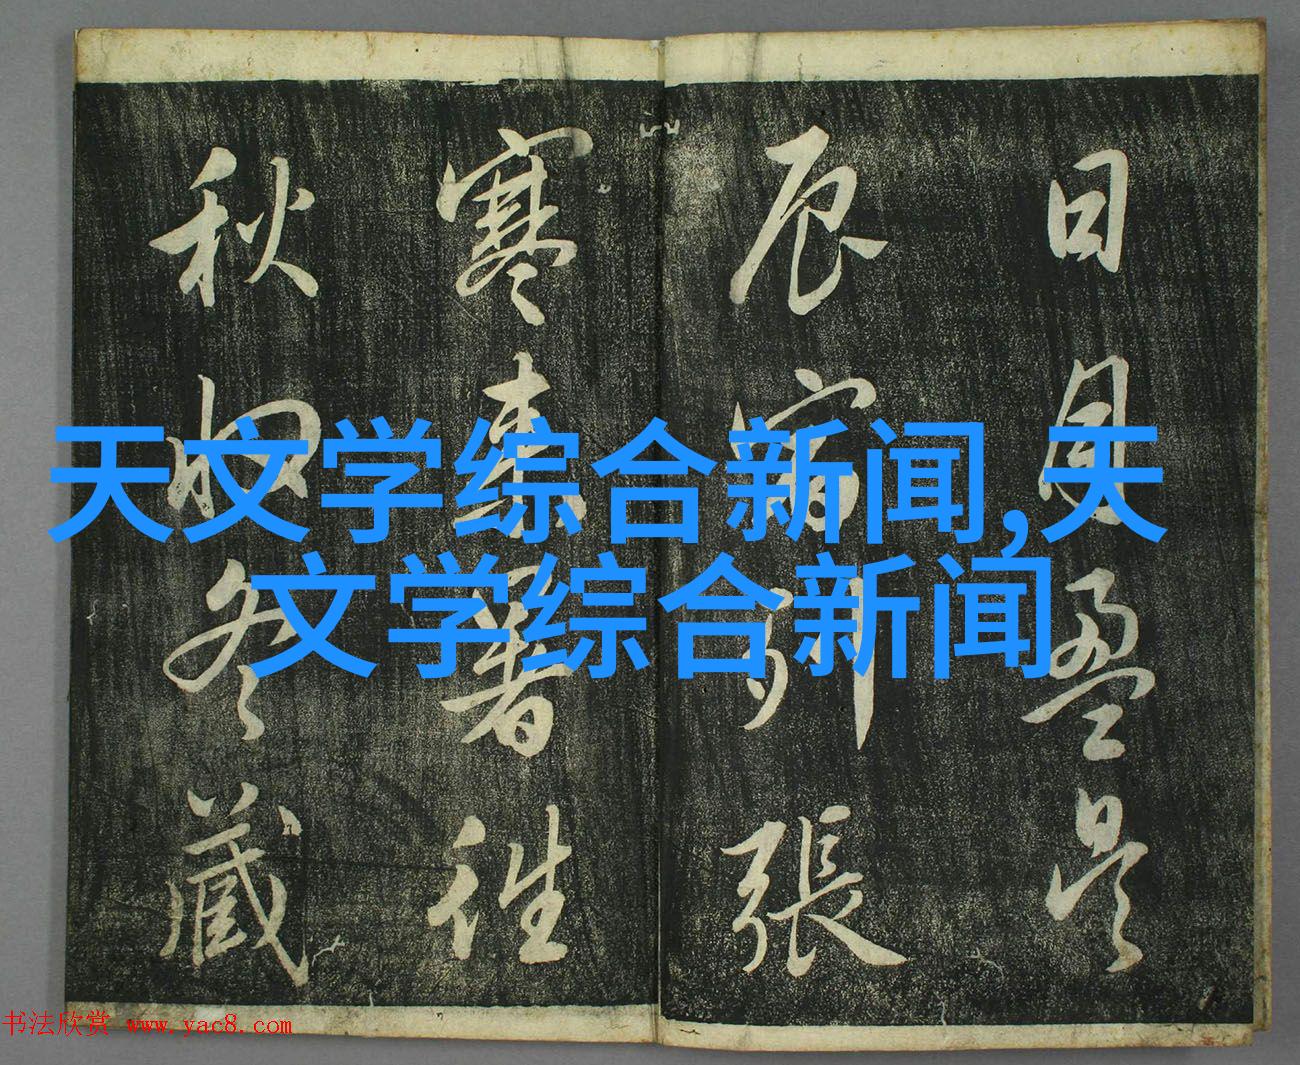 日月盈昃
辰宿列張
寒來暑往
秋收冬藏
天文学综合新闻,天
文学综合新闻
书法欣赏 www.yac8.com